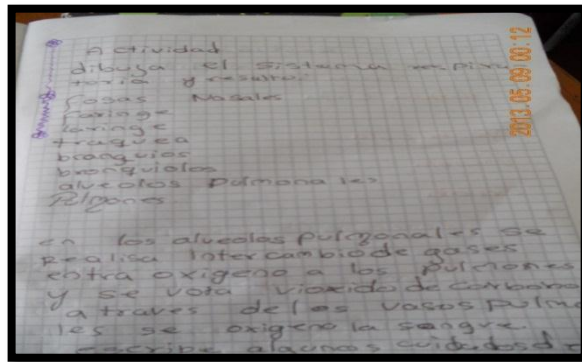 Actividad
dibuja el sistema respira
toria y resalta:
fosas Nasales
faringe
laringe
traquea
bronquios
bronquiolos
alveolos pulmonales
Pulmones
en los alveolos pulmonales se
Realisa intercambio de gases
entra oxigeno a los pulmones
y se vota vioxido de carbono
a traves de los vasos pulmo
les se oxigena la sangre.
escribe algunos cuidados d
2013.05.09 00:12